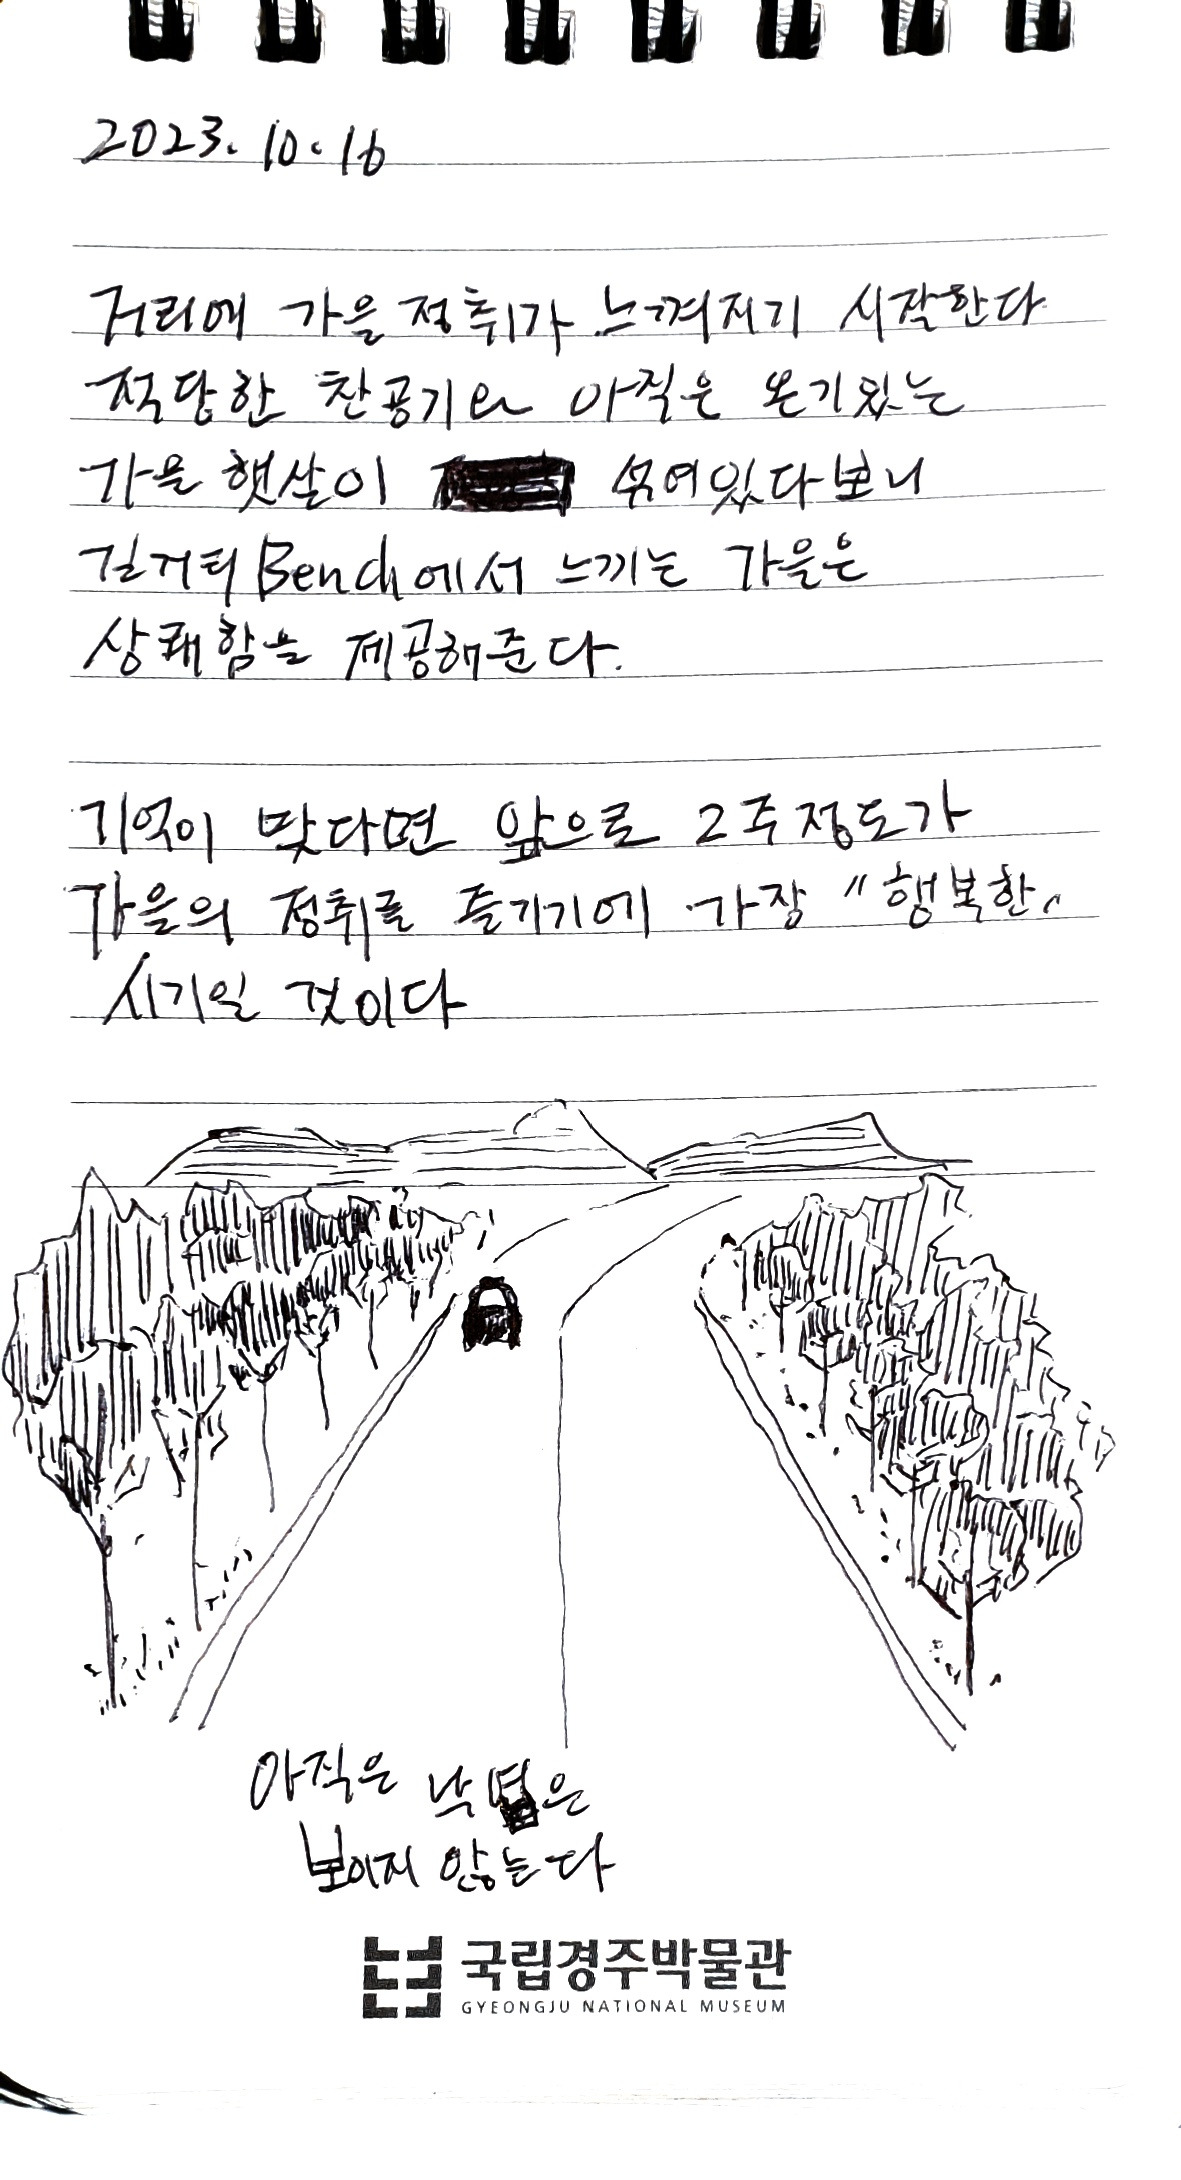 2023. 10. 16
거리에 가을 정취가 느껴지기 시작한다
적당한 찬공기와 아직은 온기있는
가을 햇살이 섞여있다보니
길거리 Bench에서 느끼는 가을은
상쾌함을 제공해준다.
기억이 맞다면 앞으로 2주정도가
가을의 정취를 즐기기에 가장 "행복한"
시기일 것이다
아직은 낙엽은
보이지 않는다
국립경주박물관
GYEONGJU NATIONAL MUSEUM